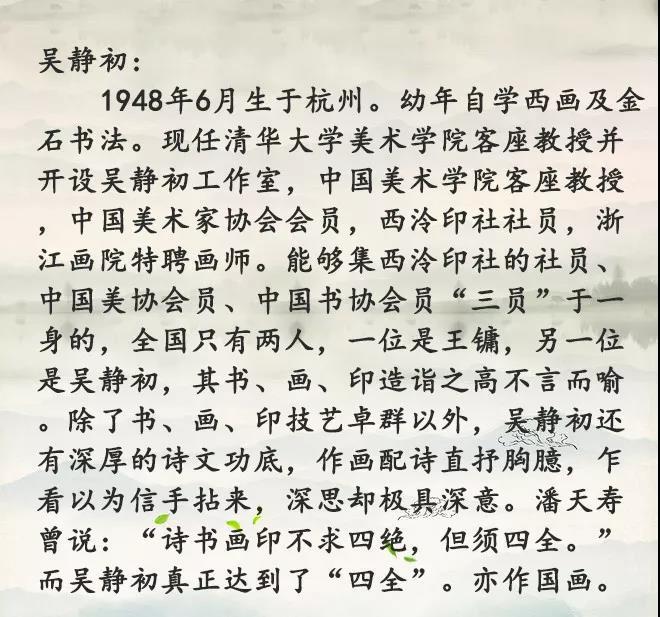 吴静初：
1948年6月生于杭州。幼年自学西画及金
石书法。现任清华大学美术学院客座教授并
开设吴静初工作室，中国美术学院客座教授
，中国美术家协会会员，西泠印社社员，浙
江画院特聘画师。能够集西泠印社的社员、
中国美协会员、中国书协会员“三员”于一
身的，全国只有两人，一位是王镛，另一位
是吴静初，其书、画、印造诣之高不言而喻
。除了书、画、印技艺卓群以外，吴静初还
有深厚的诗文功底，作画配诗直抒胸臆，乍
看以为信手拈来，深思却极具深意。潘天寿
曾说：“诗书画印不求四绝，但须四全。”
而吴静初真正达到了“四全”。亦作国画。